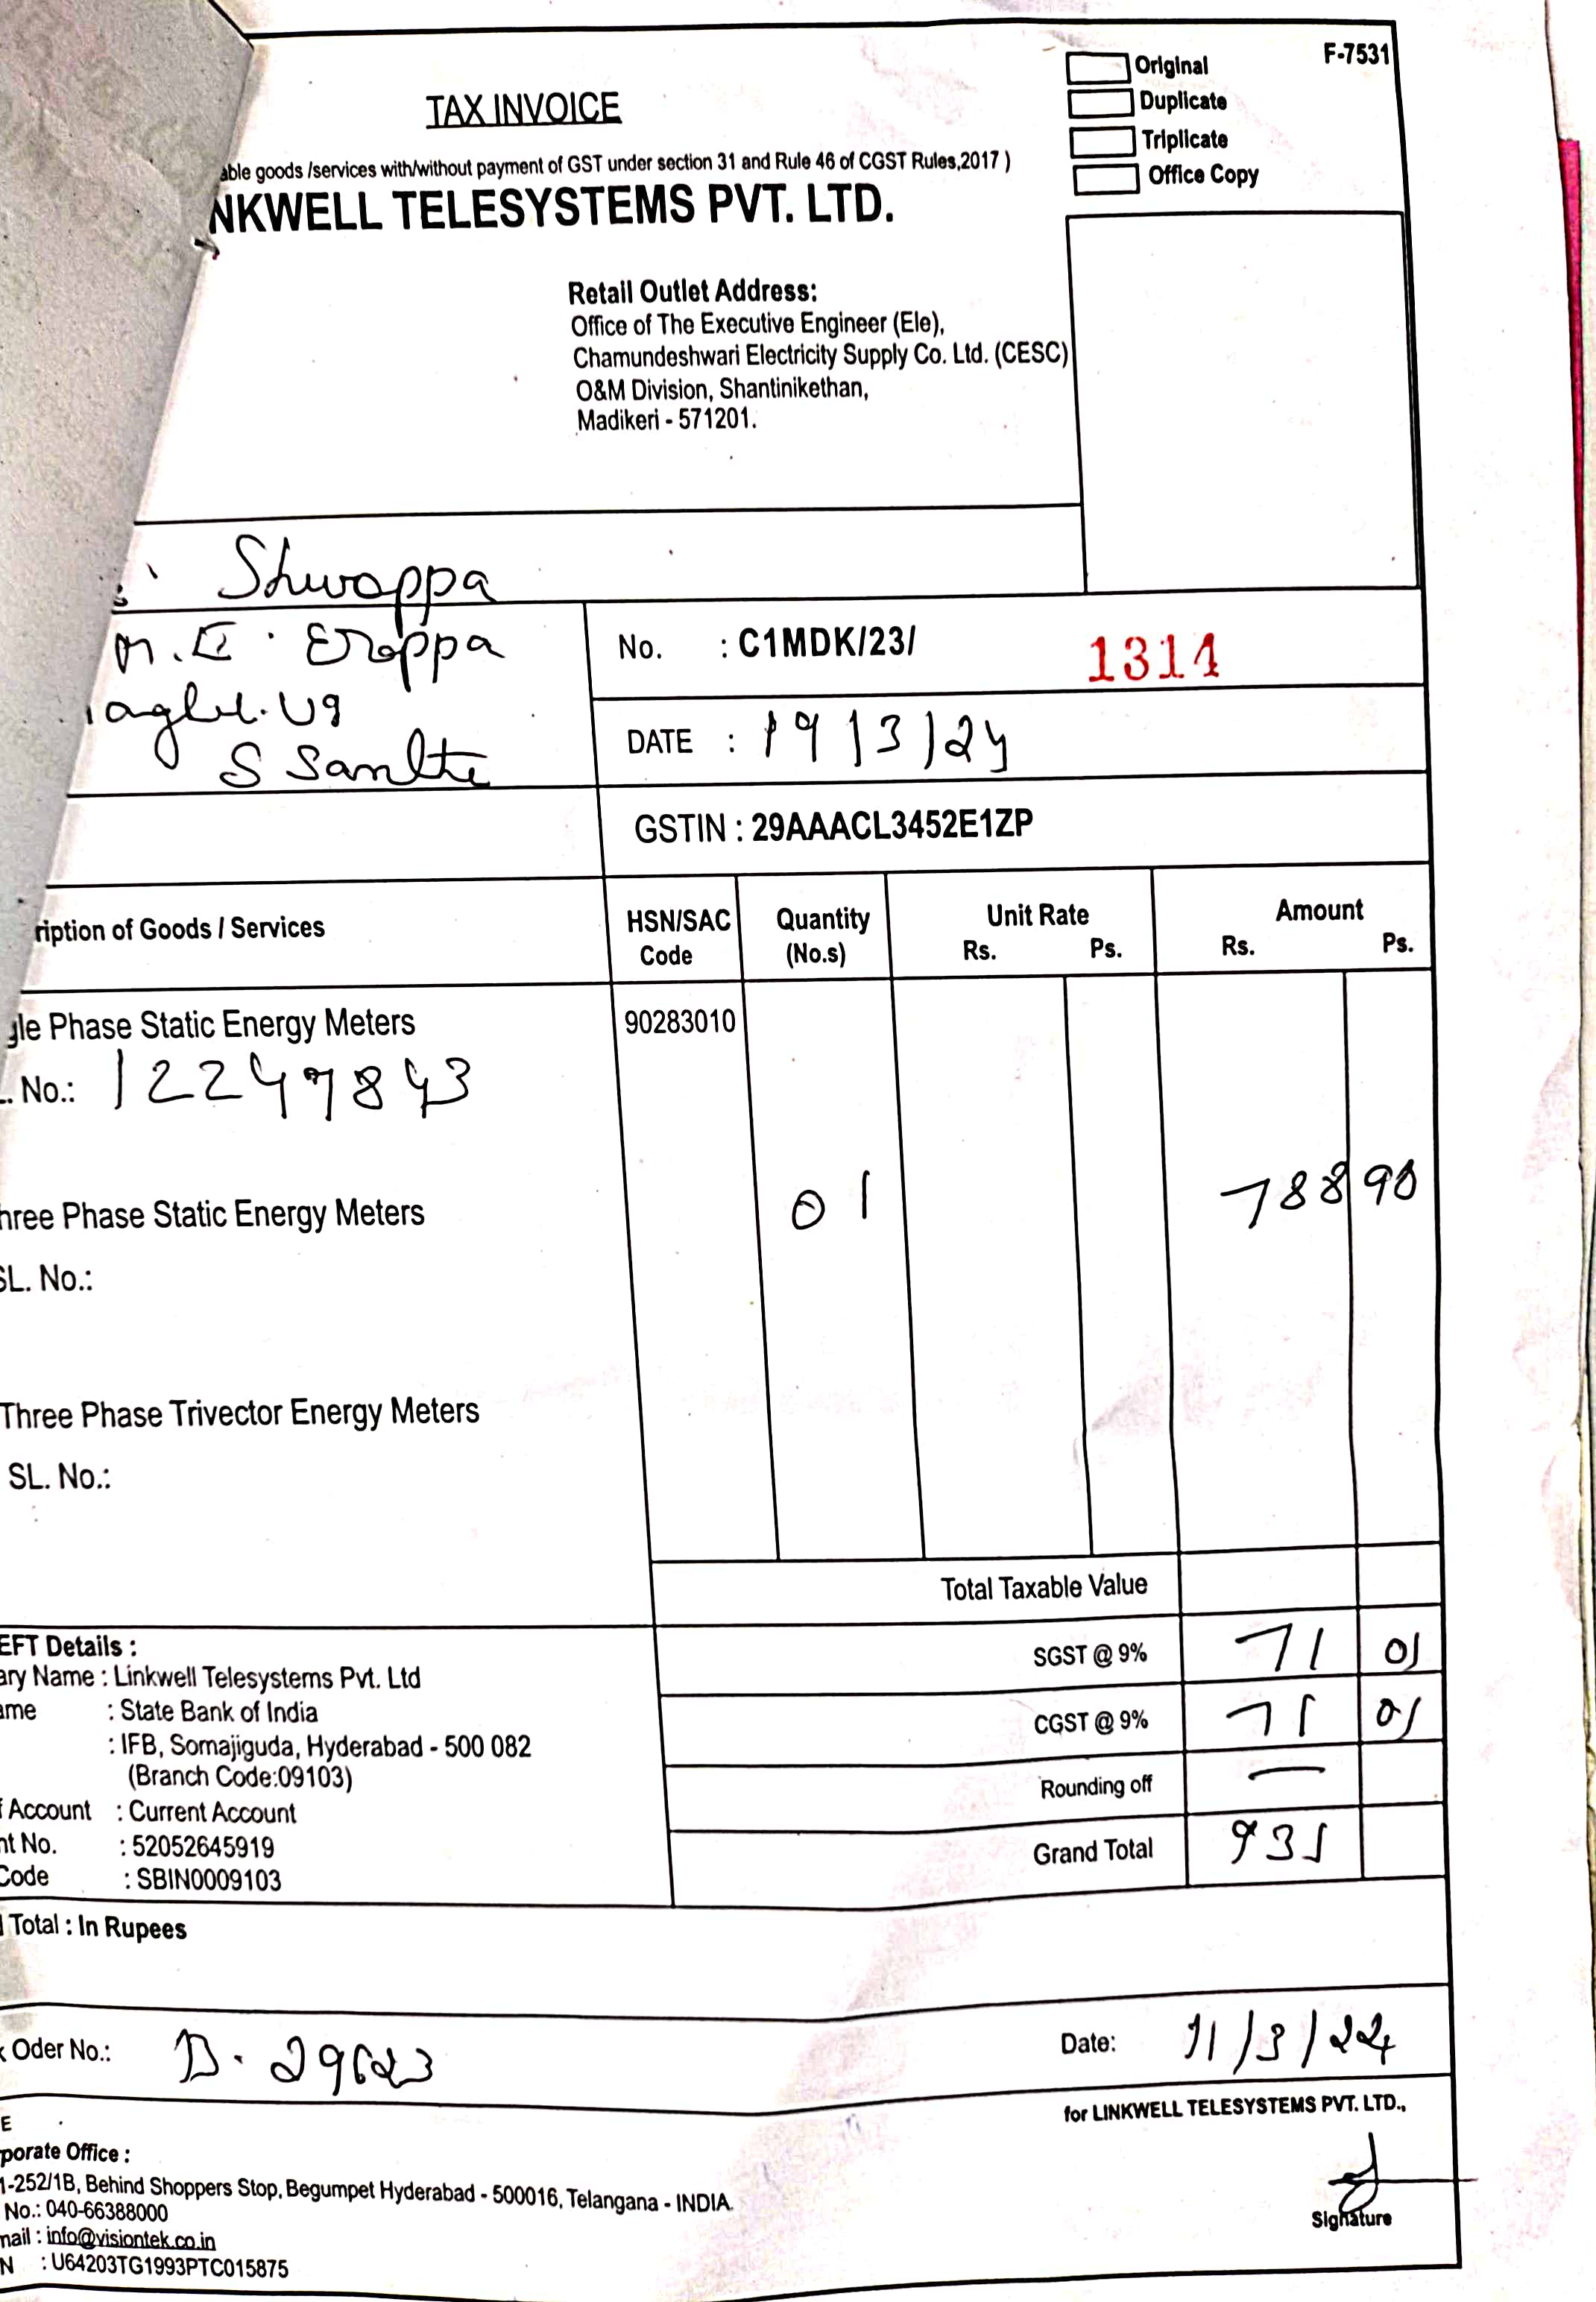 F-7531
Original
Duplicate
Triplicate
Office Copy
TAX INVOICE
able goods /services with/without payment of GST under section 31 and Rule 46 of CGST Rules,2017 )
NKWELL TELESYSTEMS PVT. LTD.
Retail Outlet Address:
Office of The Executive Engineer (Ele),
Chamundeshwari Electricity Supply Co. Ltd. (CESC)
O&M Division, Shantinikethan,
Madikeri - 571201.
Shivappa
m. E. Erappa
S Santhe
No. : C1MDK/23/ 1314
DATE : 19/3/24
GSTIN : 29AAACL3452E1ZP
ription of Goods / Services HSN/SAC Code Quantity (No.s) Unit Rate Rs. Ps. Amount Rs. Ps.
gle Phase Static Energy Meters 90283010
. No.: 12247843
01 788 90
hree Phase Static Energy Meters
SL. No.:
Three Phase Trivector Energy Meters
SL. No.:
Total Taxable Value
SGST @ 9% 71 01
CGST @ 9% 71 01
Rounding off —
Grand Total 931
EFT Details :
ary Name : Linkwell Telesystems Pvt. Ltd
ame : State Bank of India
: IFB, Somajiguda, Hyderabad - 500 082
(Branch Code:09103)
f Account : Current Account
nt No. : 52052645919
Code : SBIN0009103
Total : In Rupees
Oder No.: D. 29623 Date: 11/3/24
for LINKWELL TELESYSTEMS PVT. LTD.,
Signature
E
porate Office :
1-252/1B, Behind Shoppers Stop, Begumpet Hyderabad - 500016, Telangana - INDIA.
No.: 040-66388000
mail : info@visiontek.co.in
N : U64203TG1993PTC015875